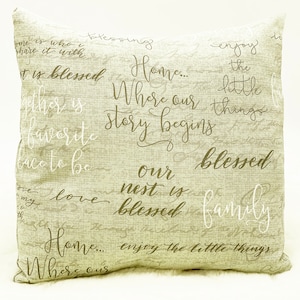 blessing
home is who i
share it with
enjoy
the
little
things
t is blessed
Home...
Where our
story begins
ther is
favorite
ace to be
blessed
our
nest is
blessed
love
family
Home...
Where our
enjoy the little things